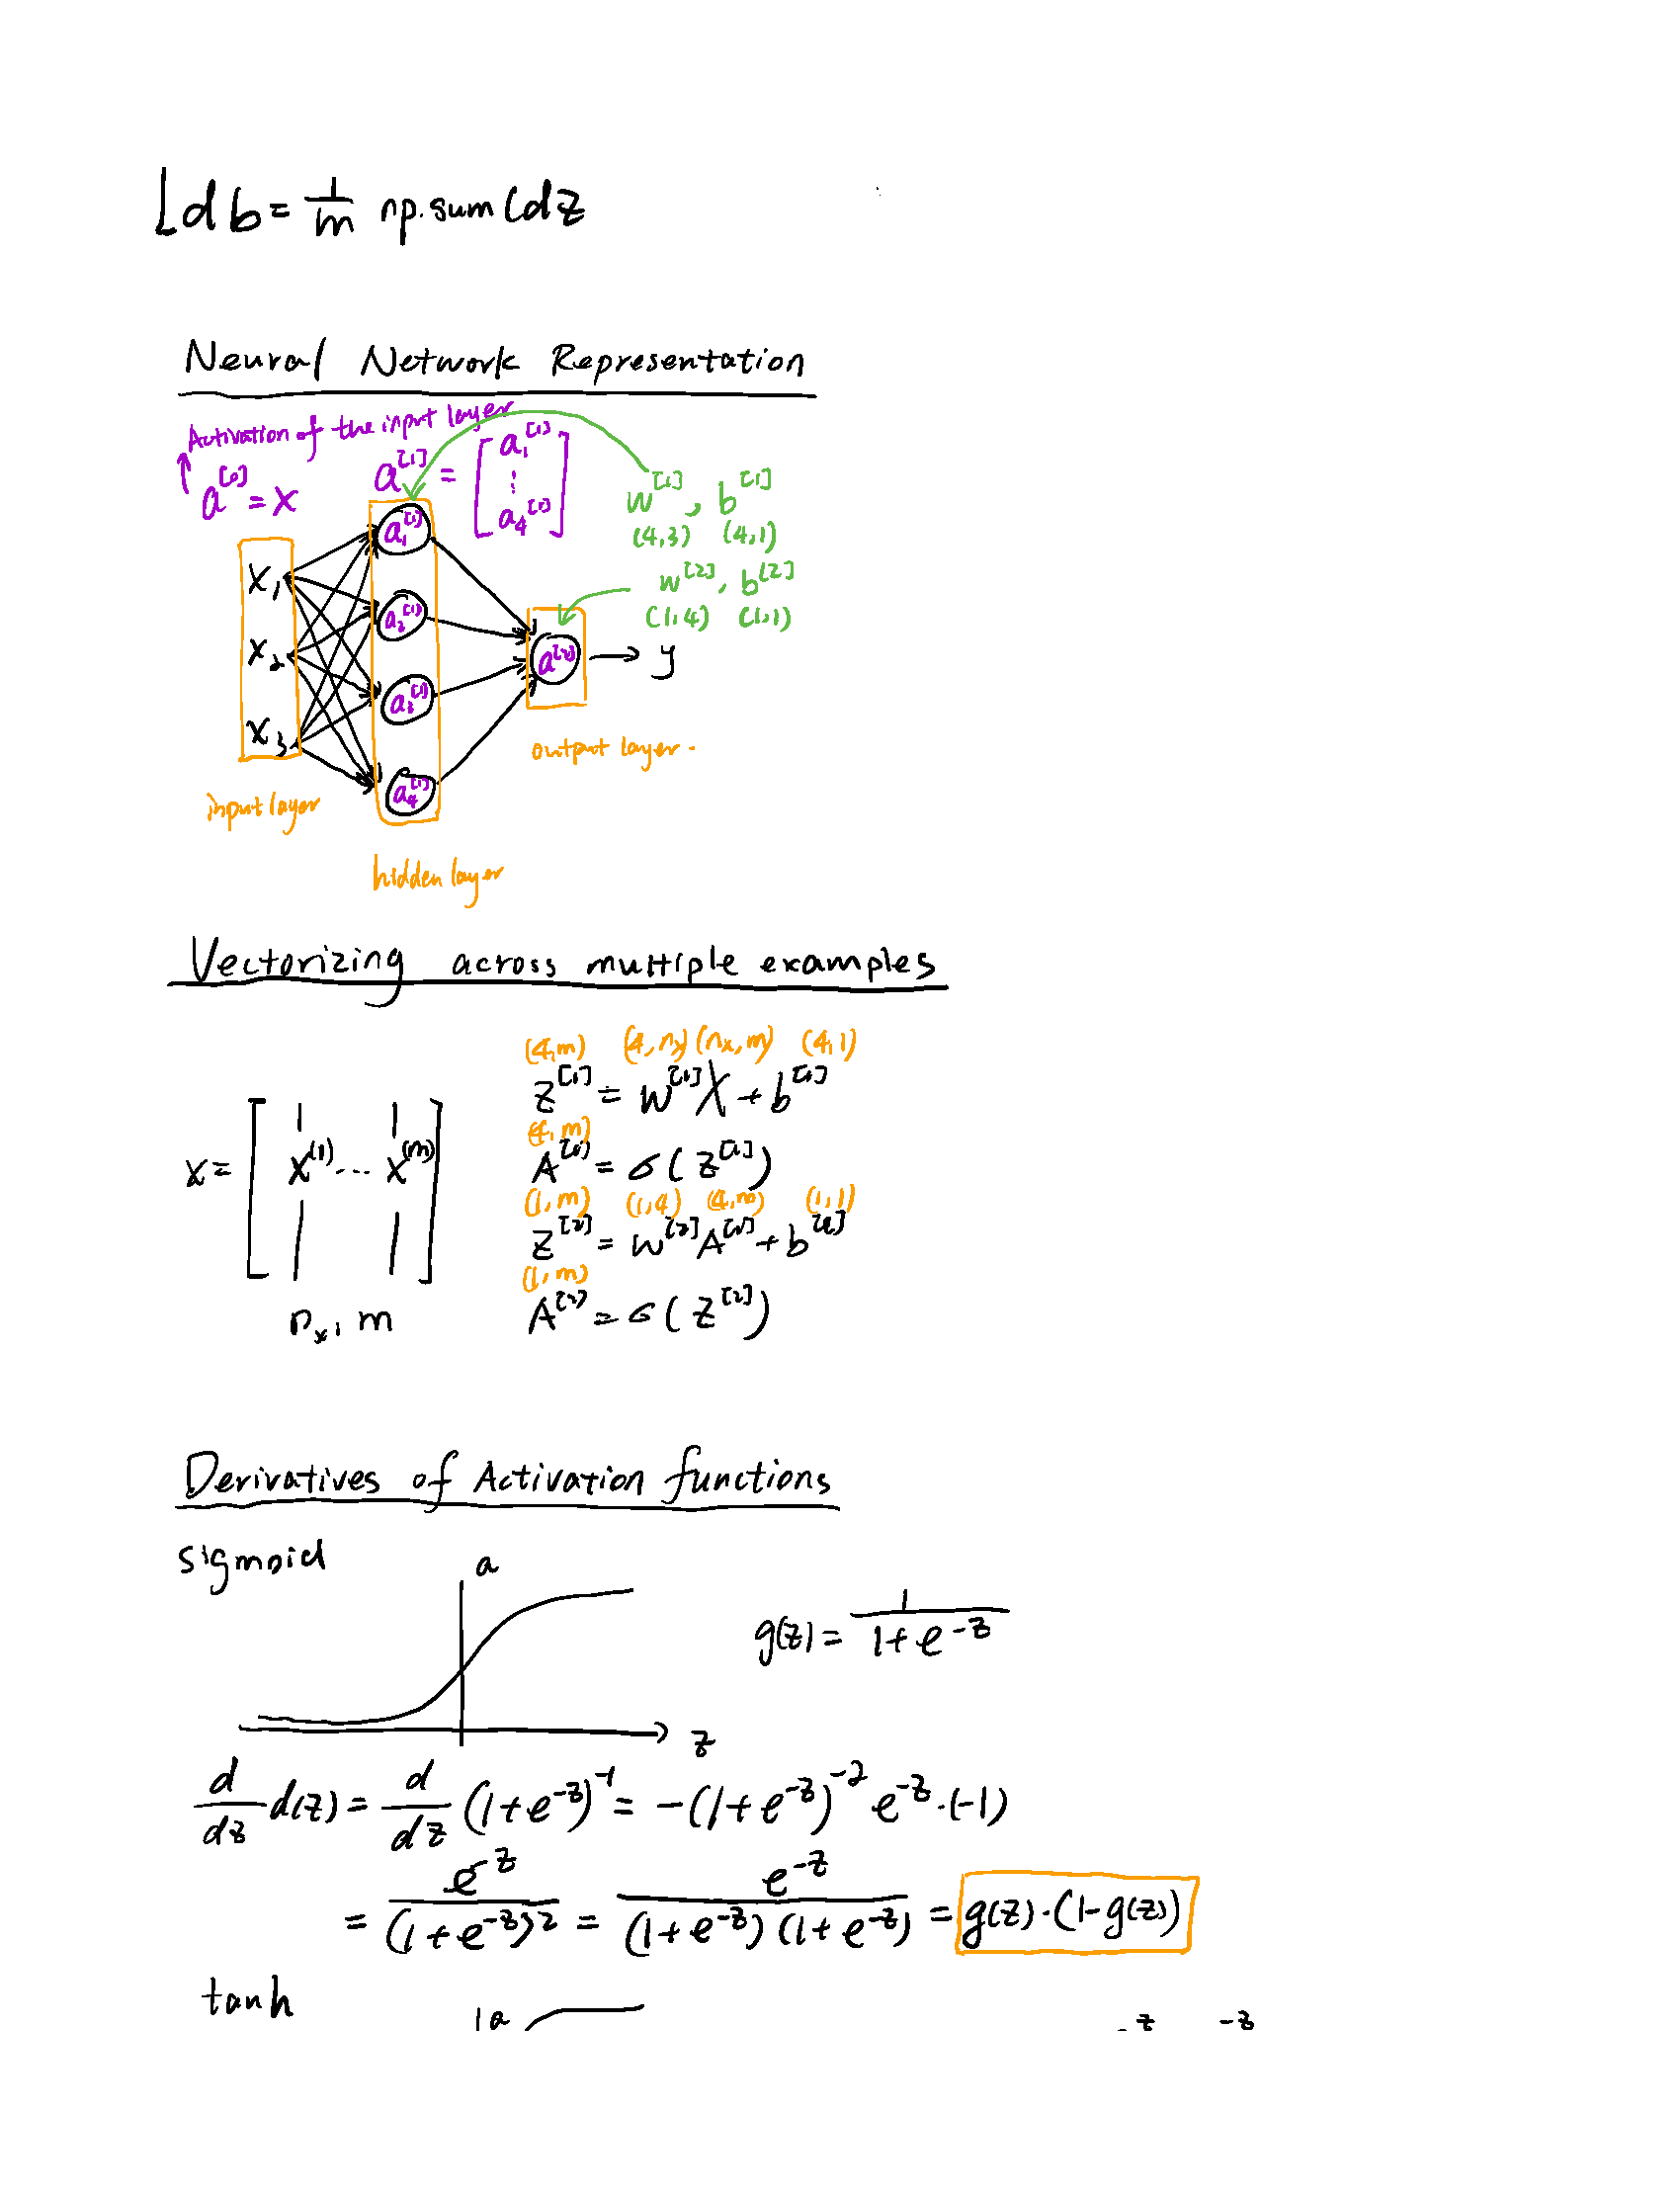 db = 1/m np.sum(dz
Neural Network Representation
Activation of the input layer
a^[0] = x
a^[1] = [a_1^[1] ⋮ a_4^[1]]
w^[1], b^[1]
(4,3) (4,1)
w^[2], b^[2]
(1,4) (1,1)
x_1
x_2
x_3
a_1^[1]
a_2^[1]
a_3^[1]
a_4^[1]
a^[2]
y
input layer
hidden layer
output layer.
Vectorizing across multiple examples
x = [x^(1) ... x^(m)]
n_x, m
(4,m) (4,n_x) (n_x,m) (4,1)
z^[1] = w^[1]X + b^[1]
(4,m)
A^[1] = σ(z^[1])
(1,m) (1,4) (4,m) (1,1)
z^[2] = w^[2]A^[1] + b^[2]
(1,m)
A^[2] = σ(z^[2])
Derivatives of Activation functions
sigmoid
a
z
g(z) = 1/(1+e^-z)
d/dz d(z) = d/dz (1+e^-z)^-1 = -(1+e^-z)^-2 e^-z·(-1)
= e^-z/(1+e^-z)^2 = e^-z/((1+e^-z)(1+e^-z)) = g(z)·(1-g(z))
tanh
a
z -z